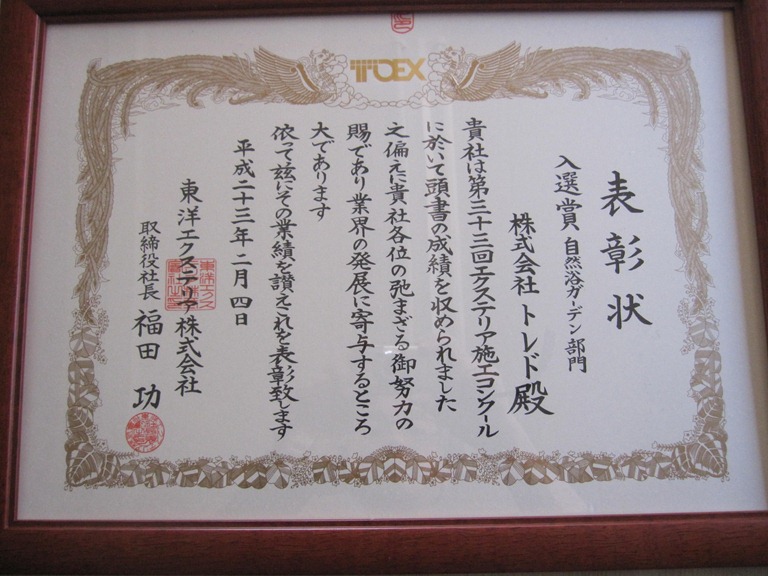 TOEX
表彰状
入選賞 自然浴ガーデン部門
株式会社 トレド殿
貴社は第三十三回エクステリア施工コンクール
に於いて頭書の成績を収められました
之偏えに貴社各位の弛まざる御努力の
賜であり業界の発展に寄与するところ
大であります
依って茲にその業績を讃えこれを表彰致します
平成二十三年二月四日
東洋エクステリア株式会社
取締役社長 福田 功